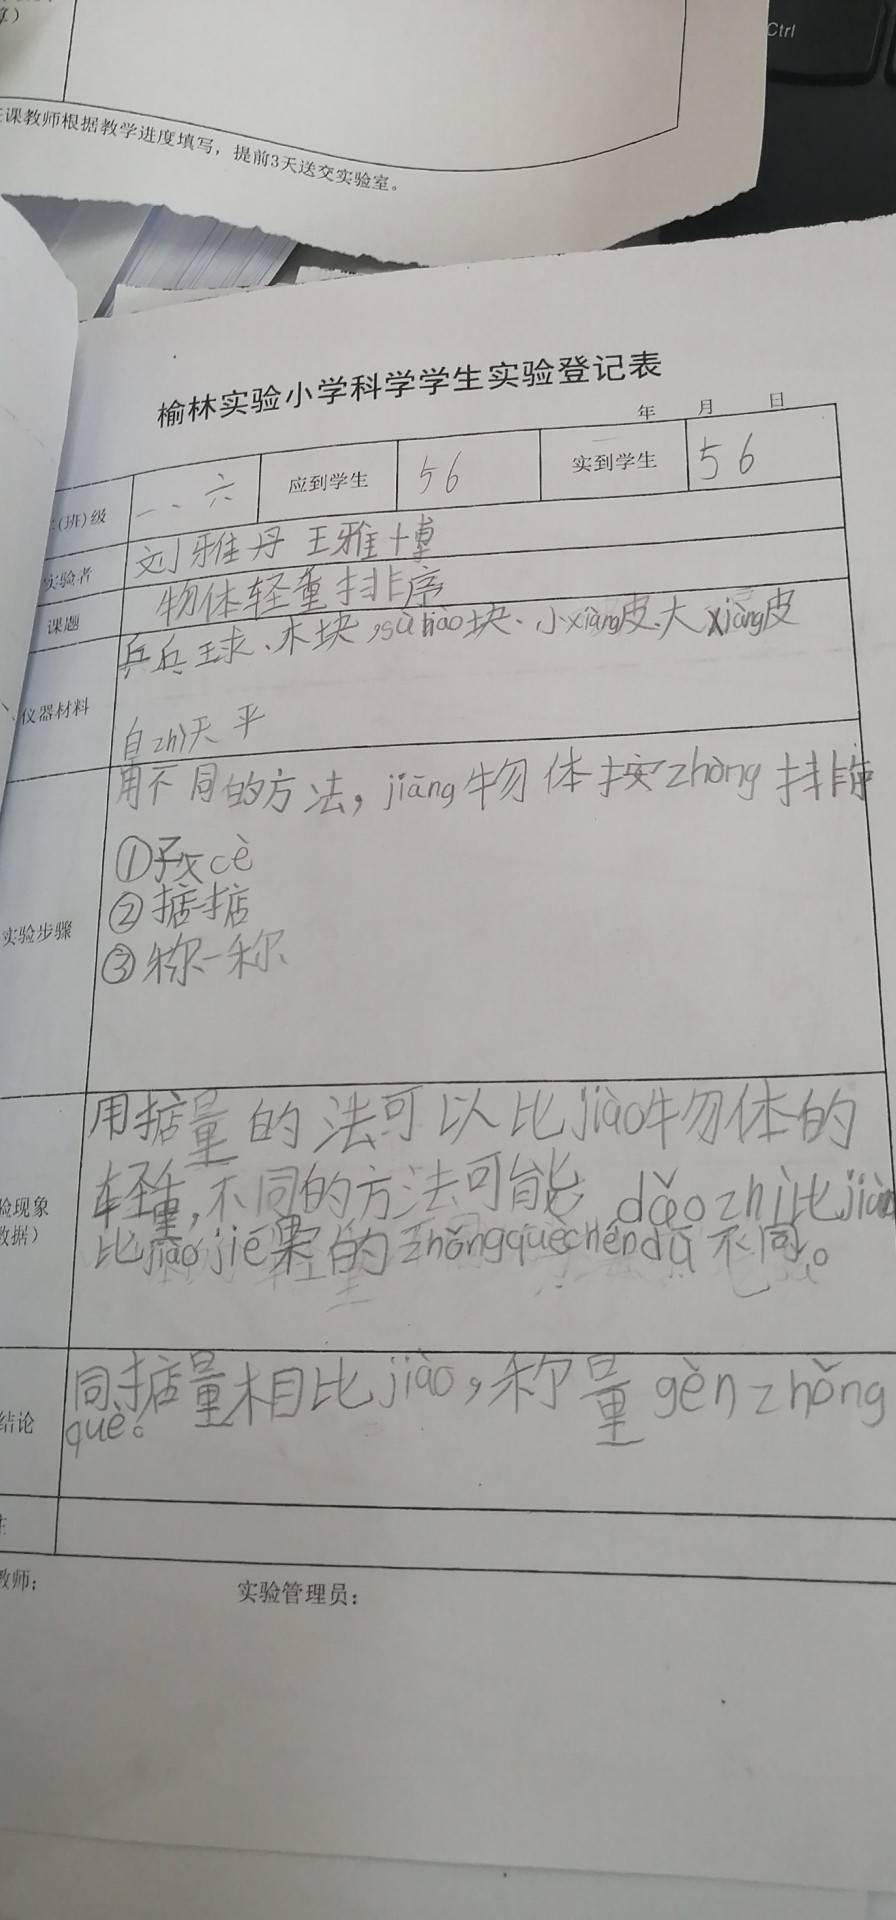 Ctrl
课教师根据教学进度填写，提前3天送交实验室。
榆林实验小学科学学生实验登记表
年 月 日
(班)级 一、六 应到学生 56 实到学生 56
实验者 刘雅丹 王雅博
课题 物体轻重排序
乒乓球、木块,sùliào块、小xiàng皮、大xiàng皮
仪器材料
自zhì天平
用不同的方法，jiāng物体按zhòng排序
①预cè
②掂掂
实验步骤
③称一称
用掂量的法可以比jiào物体的
验现象 轻重,不同的方法可能dǎozhì比jiào
数据）
比jiào jié果的zhǔnquèchéndù不同。
同掂量相比jiào，称量gèn zhǒng
结论
què。
教师: 实验管理员: